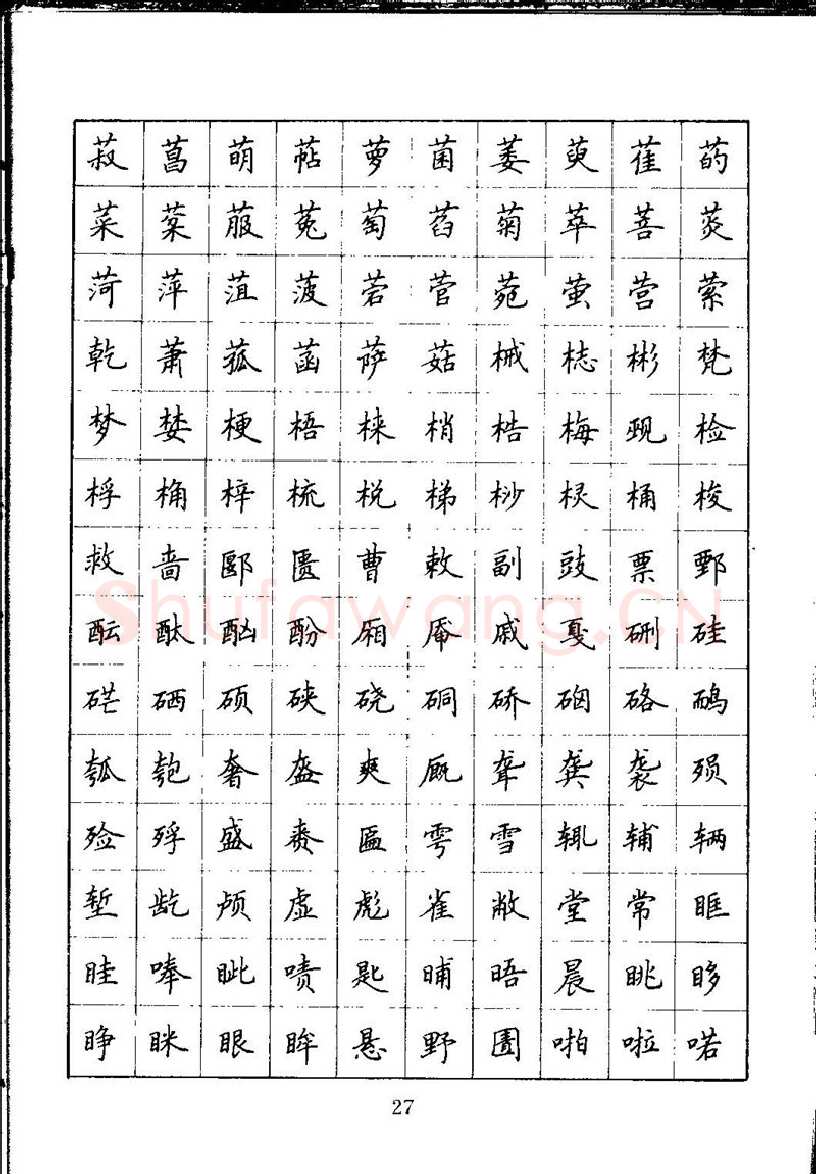 菽菖萌萜萝菌萎萸萑菂
菜棻菔菟萄萏菊萃菩菼
菏萍菹菠菪菅菀萤营萦
乾萧菰菡萨菇械梽彬梵
梦婪梗梧梾梢梏梅觋检
桴桷梓梳棁梯桫棂桶梭
救啬郾匮曹敕副豉票鄄
酝酞酗酚厢厣戚戛硎硅
硭硒硕硖硗硐硚硇硌鸸
瓠匏奢盔爽厩聋龚袭殒
殓殍盛赉匾雩雪辄辅辆
堑龁颅虚彪雀敝堂常眶
眭唪眦啧匙晡晤晨眺眵
睁眯眼眸悬野圊啪啦喏
Shufawang.CN
27